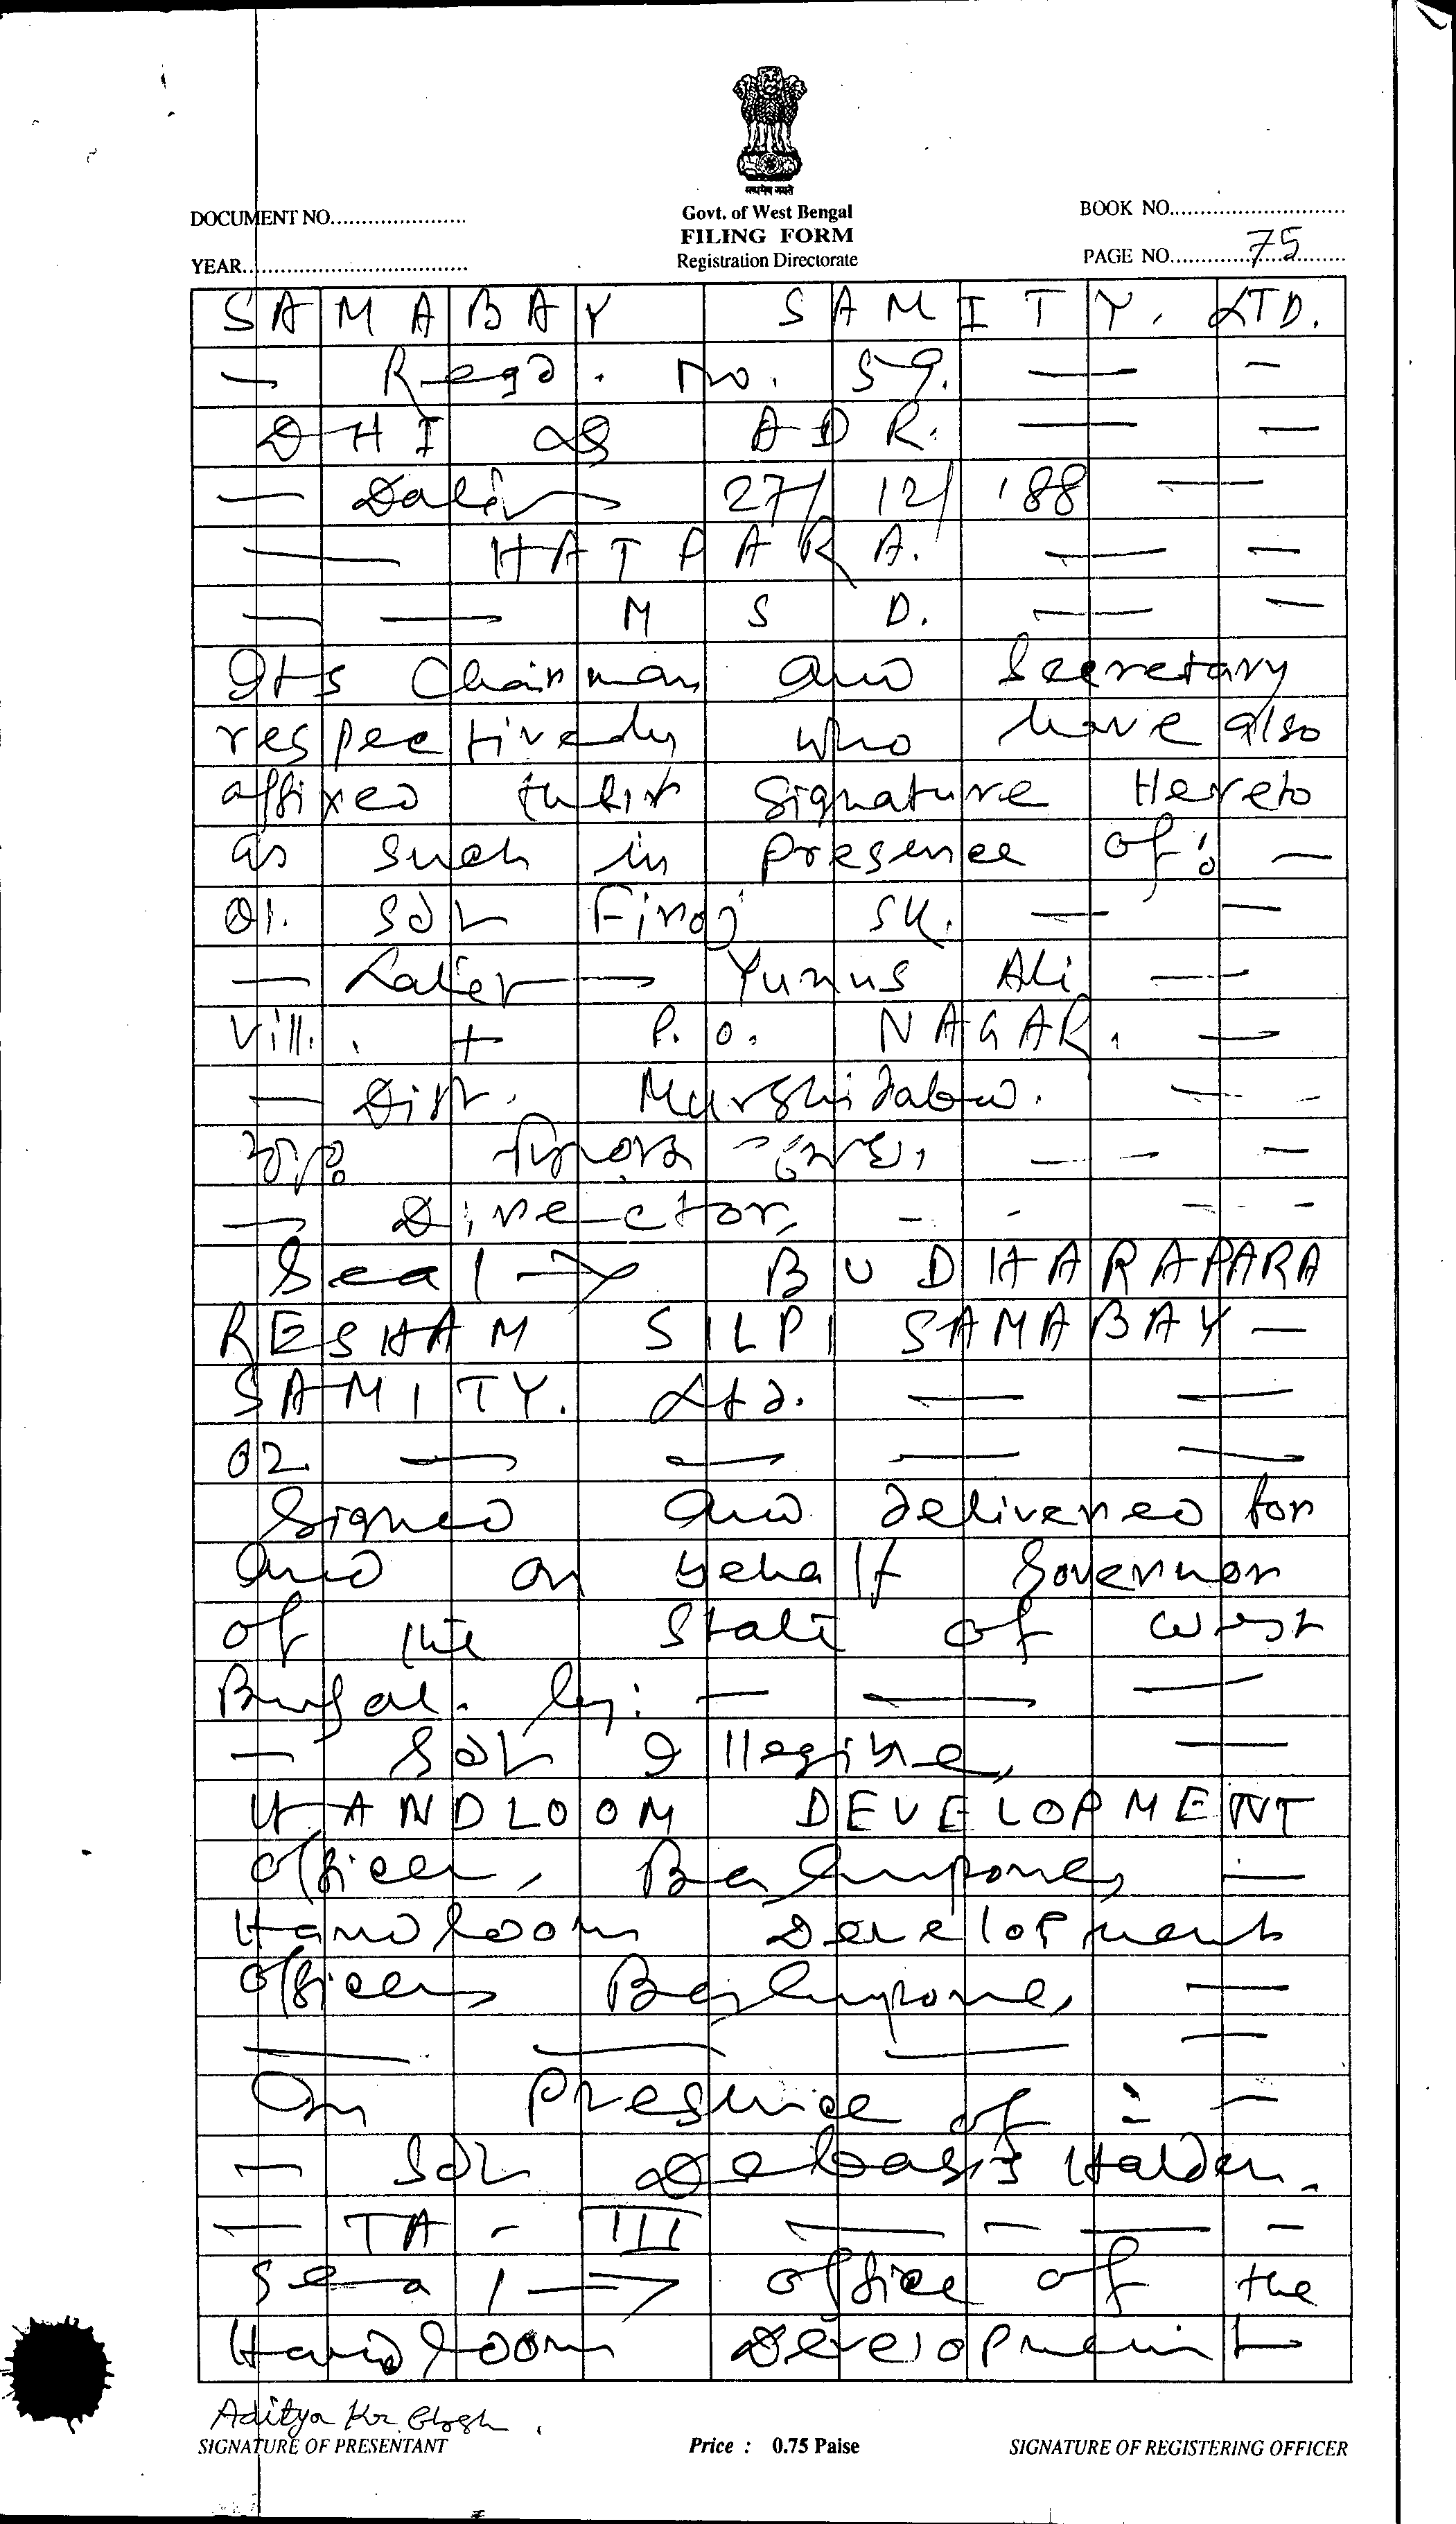 सत्यमेव जयते
DOCUMENT NO......................
Govt. of West Bengal
BOOK NO............................
FILING FORM
YEAR....................................
Registration Directorate
PAGE NO.............75............
SAMABAY SAMITY. LTD.
— Regd. No. 59. — —
DHI of ADR. — —
— Dated 27/12/'88 —
— HATPARA. — —
— — M S D. — —
Its Chairman and Secretary
respectively who have also
affixed their Signature Hereto
as such in presence of: —
01. Sd/- Firoj SK. — —
— Late Yunus Ali —
Vill. + P.O. NAGAR. —
— Dist. Murshidabad. — —
ফিরোজ সেখ, — — —
— Director, - - - -
Seal → BUDHARAPARA
RESHAM SILPI SAMABAY —
SAMITY. Ltd. — —
02. — — — —
Signed and delivered for
and on behalf Governor
of the State of West
Bengal. by: — — —
— Sd/- Illegible, —
HANDLOOM DEVELOPMENT
Officer, Berhampore, —
Handloom Development
Officer Berhampore, —
— — — —
In Presence of : —
— Sd/- Debasis Halder.
— TA - III — — — —
Seal → office of the
Handloom Development
Aditya Kr. Ghosh.
SIGNATURE OF PRESENTANT
Price : 0.75 Paise
SIGNATURE OF REGISTERING OFFICER